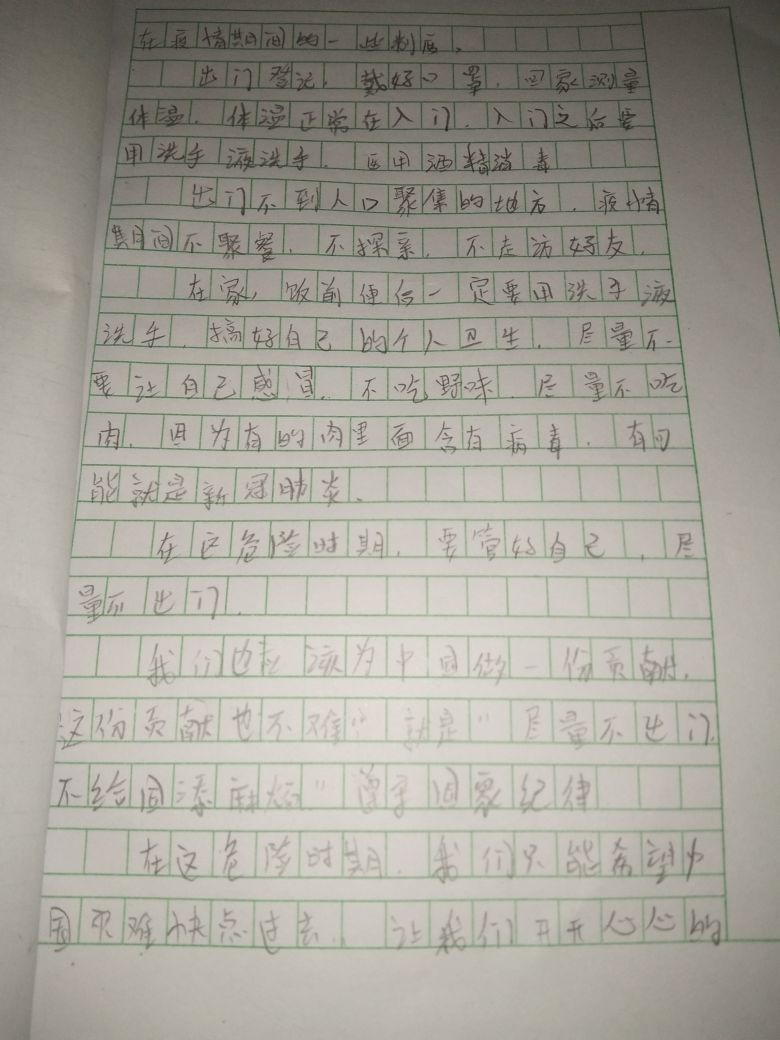 在疫情期间的一些制度。
出门登记，戴好口罩，回家测量
体温，体温正常在入门，入门之后要
用洗手液洗手，医用酒精消毒
出门不到人口聚集的地方，疫情
期间不聚餐，不探亲，不走访好友，
在家，饭前便后一定要用洗手液
洗手，搞好自己的个人卫生，尽量不
要让自己感冒，不吃野味 尽量不吃
肉，因为有的肉里面含有病毒，有可
能就是新冠肺炎。
在这危险时期，要管好自己，尽
量不出门。
我们也应该为中国做一份贡献，
这份贡献也不难"就是"尽量不出门，
不给国添麻烦"遵守国家纪律
在这危险时期，我们只能希望中
国灾难快点过去，让我们开开心心的